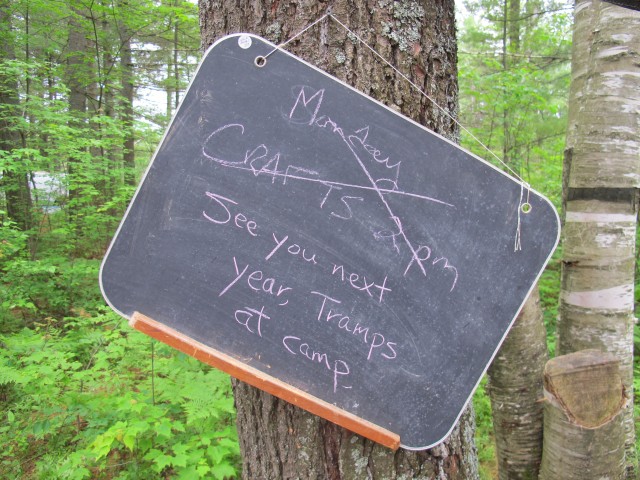 Monday
CRAFTS 2pm
See you next
year, Tramps
at camp.